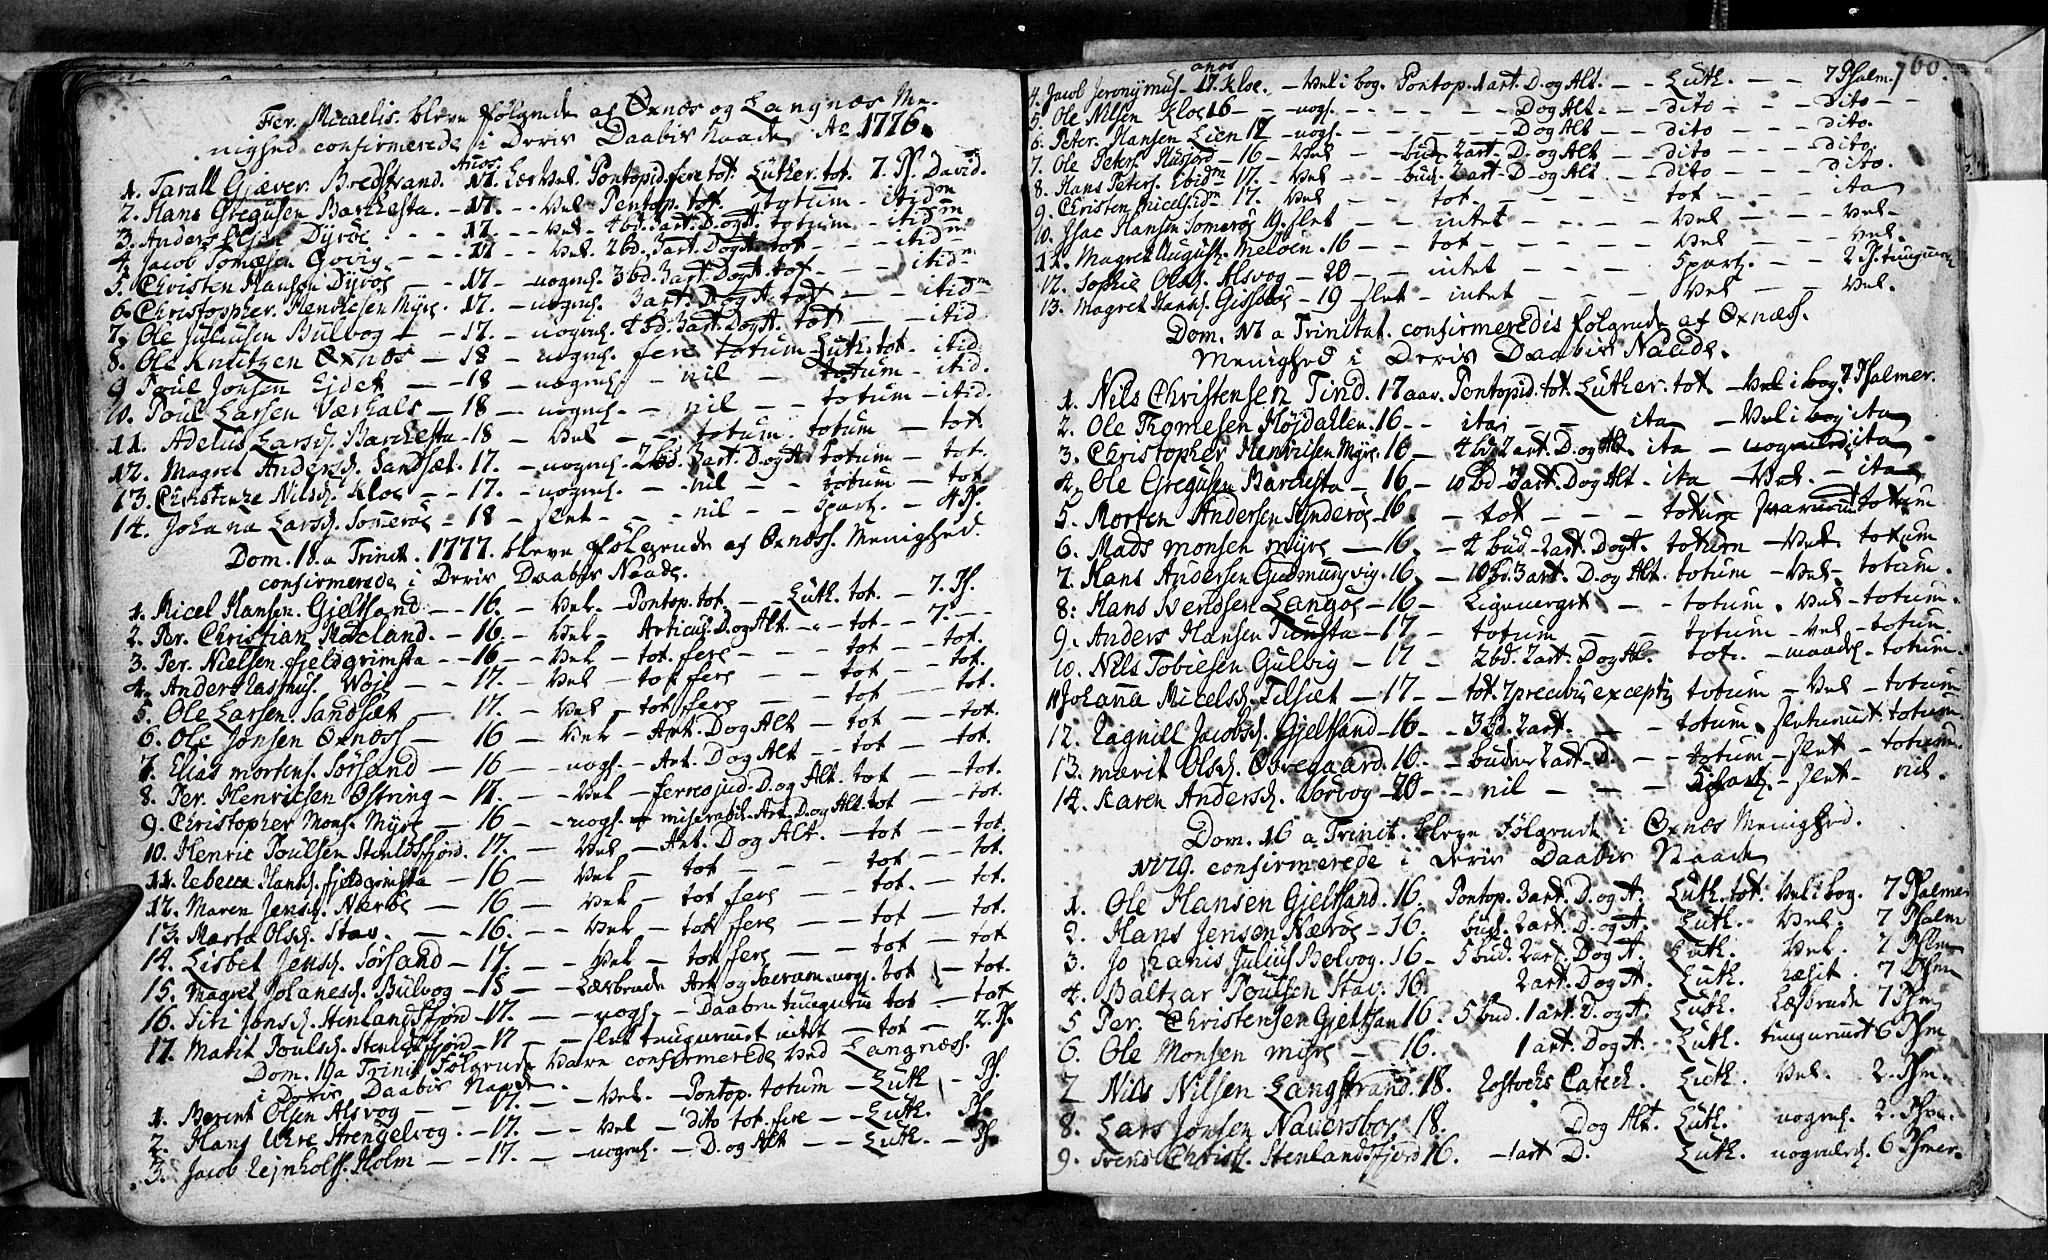 Fer. Micaelis bleve følgende af Øxnæs og Langnæs Me-
nighed confirmerede i Deris Daabis Naade Ao 1776.
1. Taralt Gjæver Bredstrand. 17. Anos. Læs Vel. Pontopid. fere tot. Luther. tot. 7. Ps. David.
2. Hans Gregusen Barchesta. - 17. - - Vel Pontop. tot. totum - itidm
3. Anders Olsen Dyrøe - - - 17. - - Vel - 4 bd. 3 art. D. og A. totum - itidm
4. Jacob Tomæsen Govig - - - 17 - - Vel. 2 bd. 3 art. D og A. tot - - itidm
5. Christen Hansen Dyrøe - - 17 - nogenl. 3 bd. 3 art. D og A. tot - - - itidm
6. Christopher Henricsen Myre. - 17. - nogenl. 3 art. D og A. tot - - itidm
7. Ole Juliusen Bulvog - 17. - nogenl. 4 bd. 3 art. D og A. tot - - itid
8. Ole Knutzen Øxnæs - 18 - nogenl. fere totum Luth. tot. itid.
9 Poul Jonsen Eidet - - 18 - nogenl. - nil - totum - itid.
10. Poul Larsen Værhals - 18 - nogenl. - nil - - totum - itid.
11. Adelus Larsd. Barchesta - 18 - Vel - - totum. totum - tot.
12. Magret Andersd. Sandsæt. 17. - nogenl. 2 bd. 3 art. D. og A. totum - tot.
13. Christenze Nilsd. Kloe - - 17. - nogenl. - nil - - totum - tot
14. Johana Larsd. Somerøe - 18 - slet - - nil - - 5 part. - 4 Ps.
Dom. 18. a Trinit. 1777. bleve følgende af Øxnæss. Menighed.
confirmerede i Deris Daabis Naade.
1. Micel Hansen. Gjeltsand - - 16. - Vel. - Pontop. tot. - - Luth. tot. - 7. Ps.
2. Per. Christian Røeland. - 16. - Vel - Articul. D. og Alt - - tot - - 7. - -
3. Per. Nielsen fjeldgrimsta - - 16 - - Vel - tot. fere - - - tot - - tot.
4. Anders Rasmus. Woje - - 17. - Vel - tot fere - - - tot - - tot.
5. Ole Larsen. Sandsæt - 17. - Vel - tot fere - - - tot - - tot.
6. Ole Jonsen Øxnæss - 16 - Vel - Art. D og Alt - tot - - tot.
7. Elias Mortens. Sørsand - 16 - - nogl. - Art. D og Alt - - tot - - tot.
8. Per. Henricsen Østring - 17. - - Vel - ferre 5 bud. D. og Alt. tot - - tot.
9. Christopher Mons. Myre - 16 - - nogl. - miserabil. Art. D. og Alt. tot - - tot.
10. Henric Poulsen Stenlandsfjord. 17. - - Vel - Art. D og Alt. - tot - - tot.
11. Rebecca Hansd. fjeldgrimsta - 16 - - Vel - tot - - - tot - tot.
12. Maren Jensd. Nærøe - 16 - - Vel - tot fere - - tot. - tot.
13. Marta Olsd. Stav. - - 16. - - Vel - tot fere - - tot - - tot.
14. Lisbet Jensd. Sørsand - 17. - - Vel - tot fere - - tot - tot
15. Magret Johanesd. Bulvog - 18 - - Læsende Art og Sacram. nogl. tot - tot.
16. Siri Jonsd. Stenlandsfjord - 17. - - nogl. - Daaben tungnem tot - tot
17. Marit Poulsd. Stenlandsfjord - 17 - - slet tungnemt intet - tot - 2. Ps.
Dom. 19 a Trinit følgende bleve confirmerede Ved Langnæss.
i Deris Daabis Naade.
1. Berent Olsen Alsvog - - 17. - - Vel. - Pontop. totum - Luth - Ps.
2. Hans Uhre Strengelvog. - 17. - - Vel - dito tot. fere - - Luth. - Ps.
3. Jacob Rejnholts. Holm - - 17. - - nogenl. - D. og Alt - - Luth. - Ps.
700.
4. Jacob Jeronymus - 17. anos Kloe. - Vel i bog. Pontop. 1 art. D. og Alt. - - Luth. - - 7 Psalm.
5. Ole Nilsen Kloe 16 - - nogl. - - - - D og Alt - - dito - - - Dito - -
6. Peter. Hansen Lien 17 - nogl. - - - - D og Alt - - dito - - - dito.
7. Ole Peters. Husjord - 16 - Vel - - bud. 2 art. D. og Alt - - dito - - - dito.
8. Hans Peters. Ibidm 17. - Vel - - bud. 2 art. D. og Alt. - dito - - - dito.
9. Christen Micelsen Idm. 17. Vel - - tot - - - - tot - - - ita
10. Isac Hansen Somerøe 19. slet - - intet - - - Vel - - - Vel.
11. Magret August. Meløen. 16 - - tot - - - - Vel - - - Vel.
12. Sophie Olsd. Alsvog - 20 - - intet - - - 5 part. - - 2 Ps. tungnem
13. Magret Hansd. Gisløe - 19 slet - intet - - - Vel - - - Vel.
Dom. 17 a Trinitat. confirmeredis følgende af Øxnæss.
Menighed i Deris Daabis Naade.
1. Nils Christensen Tind. 17 aar. Pontopid. tot. Luther. tot - Vel i bog. 7 Psalmer.
2. Ole Thomesen Højdahlen. 16 - - ita - - ita - Vel i bog ita
3. Christopher Henricsen Myre 16 - 4 bd 2 art. D. og Alt. ita - nogenl. ita
4. Ole Gregusen Barchesta - 16 - 10 bd - 3 art. D og Alt - ita - Vel. - ita
5. Morten Andersen Synderøe - 16. - tot - - - totum totum
6. Mads Monsen Myre - 16. - 4 bud. 2 art. D og A. totum - Vel. totum
7. Hans Andersen Gudmunsvig. 16. - 10 bd. 3 art. D. og Alt. totum - Vel - totum.
8: Hans Svendsen Langøe - 16 - Ligeuerget - - totum. Vel - totum.
9. Anders Hansen Tunsta - 17 - totum - - totum - Vel - totum.
10. Nils Tobiesen Gulvig - 17 - 2 bd. 2 art. D og Al. tot. - maadel. - totum.
11 Johanna Micelsd. Tilset - 17 - - tot. 7 precibus exceptis totum - Vel - totum
12. Ragnill Jacobsd. Gjeltsand - 16 - - 3 B. 2 art. - - totum. slet nemt totum.
13. Marit Olsd. Øvregaard. 16. - bud. 2 art. D. - - totum - slet - totum.
14. Karen Andersd. Vorvog - 20 - - nil - - - 5 part. - slet - nil.
Dom. 16 a Trinit. bleve følgende i Øxnæs Menighed.
1779. confirmerede i Deris Daabis Naade
1. Ole Hansen Gjeltsand. 16. Pontop. 3 art. D. og A. Luth. tot. Vel i bog. 7 Psalmer
2. Hans Jensen Nærøe - 16. bud. 2 art. D. og A. Luth. Vel. 7 Psalm
3. Johanis Julius Bulvog. 16 - 5 bud. 2 art. D og A. Luth. Vel. 7 Pslm
4. Baltzar Poulsen Stav. 16. 2 art. D og A. Luth. Læsit. 7 Psm
5 Per. Christensen Gjeltsan 16. 5 bud. 1 art. D. og A. Luth. Læsende 7 Psm
6. Ole Monsen Myre - 16. 1 art. D og A. Luth. tungnemt 6 Psm
7 Nils Nilsen Langstrand. 18. Rostochs Catech. Luth. Vel. 2. Psm.
8. Lars Jonsen Naversbor. 18. D og Alt. Luth. nogenl. 2. Psm.
9. Trens Christ. Stenlandsfjord 16. - 1 art D. Luth. nogenled. 6 Psmer.